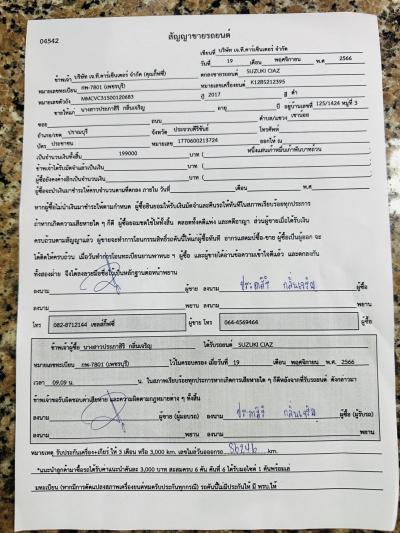 สัญญาขายรถยนต์
04542
เขียนที่ บริษัท เจ.ที.คาร์เซ็นเตอร์ จำกัด
วันที่ 19 เดือน พฤศจิกายน พ.ศ. 2566
ข้าพเจ้า บริษัท เจ.ที.คาร์เซ็นเตอร์ จำกัด (คุณกิ๊ฟซี่) ตกลงขายรถยนต์ SUZUKI CIAZ
หมายเลขทะเบียน กพ-7801 (เพชรบุรี) หมายเลขเครื่องยนต์ K12B5212395
หมายเลขตัวถัง MMCVC31S00120683 ปี 2017 สี ดำ
ขายให้แก่ นางสาวประภาสิริ กลิ่นเจริญ อายุ ปี อยู่บ้านเลขที่ 125/1424 หมู่ที่ 3
ซอย ถนน ตำบล/แขวง เขาน้อย
อำเภอ/เขต ปราณบุรี จังหวัด ประจวบคีรีขันธ์ โทรศัพท์
บัตร ประชาชน หมายเลข 1770600213724 ออกให้ ณ
เป็นจำนวนเงินทั้งสิ้น 199000 บาท ( หนึ่งแสนเก้าหมื่นเก้าพันบาทถ้วน )
ข้าพเจ้าได้รับมัดจำแล้วเป็นเงิน บาท ( )
ผู้ซื้อยังคงค้างอีกเป็นจำนวนเงิน บาท ( )
ผู้ซื้อจะนำเงินมาชำระให้ครบจำนวนตามที่ตกลง ภายใน วันที่ เดือน พ.ศ.
หากผู้ซื้อไม่นำเงินมาชำระให้ตามกำหนด ผู้ซื้อยินยอมให้ริบเงินมัดจำและคืนรถให้ทันทีในสภาพเรียบร้อยทุกประการ
ถ้าหากเกิดความเสียหายใด ๆ ก็ดี ผู้ซื้อยอมชดใช้ให้ทั้งสิ้น ตลอดทั้งคดีแพ่ง และคดีอาญา ส่วนผู้ขายเมื่อได้รับเงิน
ครบถ้วนตามสัญญาแล้ว ผู้ขายจะทำการโอนกรรมสิทธิ์รถคันนี้ให้แก่ผู้ซื้อทันที อากรแสตมป์ซื้อ-ขาย ผู้ซื้อเป็นผู้ออก จะ
ได้คิดให้ครบถ้วน เมื่อวันทำการโอนทะเบียนยานพาหนะ ฯ ผู้ซื้อ และผู้ขายได้อ่านข้อความเข้าใจดีแล้ว และตกลงกัน
ทั้งสองฝ่าย จึงได้ลงลายมือชื่อไว้เป็นหลักฐานต่อหน้าพยาน
ลงนาม ผู้ขาย ลงนาม ประภาสิริ กลิ่นเจริญ ผู้ซื้อ
ลงนาม พยาน ลงนาม พยาน
โทร 082-8712144 เซลล์กิ๊ฟซี่ ผู้ขาย โทร 064-4569464 ผู้ซื้อ
ข้าพเจ้าผู้ซื้อ นางสาวประภาสิริ กลิ่นเจริญ ได้รับรถยนต์ SUZUKI CIAZ
หมายเลขทะเบียน กพ-7801 (เพชรบุรี) ไว้ในครอบครอง เมื่อวันที่ 19 เดือน พฤศจิกายน พ.ศ. 2566
เวลา 09.09 น. น. ในสภาพเรียบร้อยทุกประการหากเกิดการเสียหายใด ๆ ก็ดีหลังจากที่รับรถยนต์ ดังกล่าวมา
ข้าพเจ้าขอรับผิดชอบค่าเสียหาย และความผิดตามกฎหมายต่าง ๆ ทั้งสิ้น
ลงนาม ผู้ขาย (ผู้มอบรถ) ลงนาม ประภาสิริ กลิ่นเจริญ ผู้ซื้อ (ผู้รับรถ)
ลงนาม พยาน ลงนาม พยาน
หมายเหตุ รับประกันเครื่อง+เกียร์ ให้ 3 เดือน หรือ 3,000 km. เลขไมล์วันออกรถ 86246 km.
*แนะนำลูกค้ามาซื้อรถได้รับค่าแนะนำคันละ 3,000 บาท สะสมครบ 6 คัน คันที่ 6 ได้รับมอไซต์ 1 คันพร้อมเล่
มทะเบียน (หากมีการดัดแปลงสภาพเครื่องยนต์หมดรับประกันทุกกรณี) รถคันนี้ไม่มีประกันให้ มี พรบ.ให้